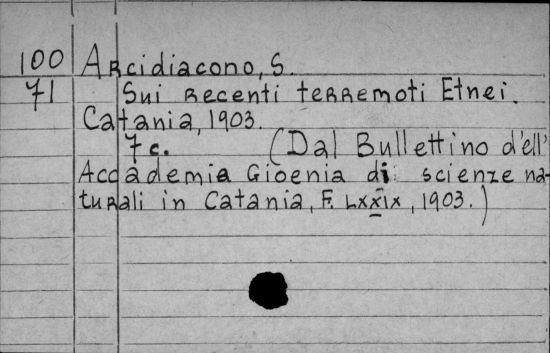 100 Arcidiacono, S.
71 Sui recenti terremoti Etnei.
Catania, 1903.
7 c. (Dal Bullettino d'ell'
Accademia Gioenia di scienze na-
turali in Catania, F. LXXIX, 1903.)